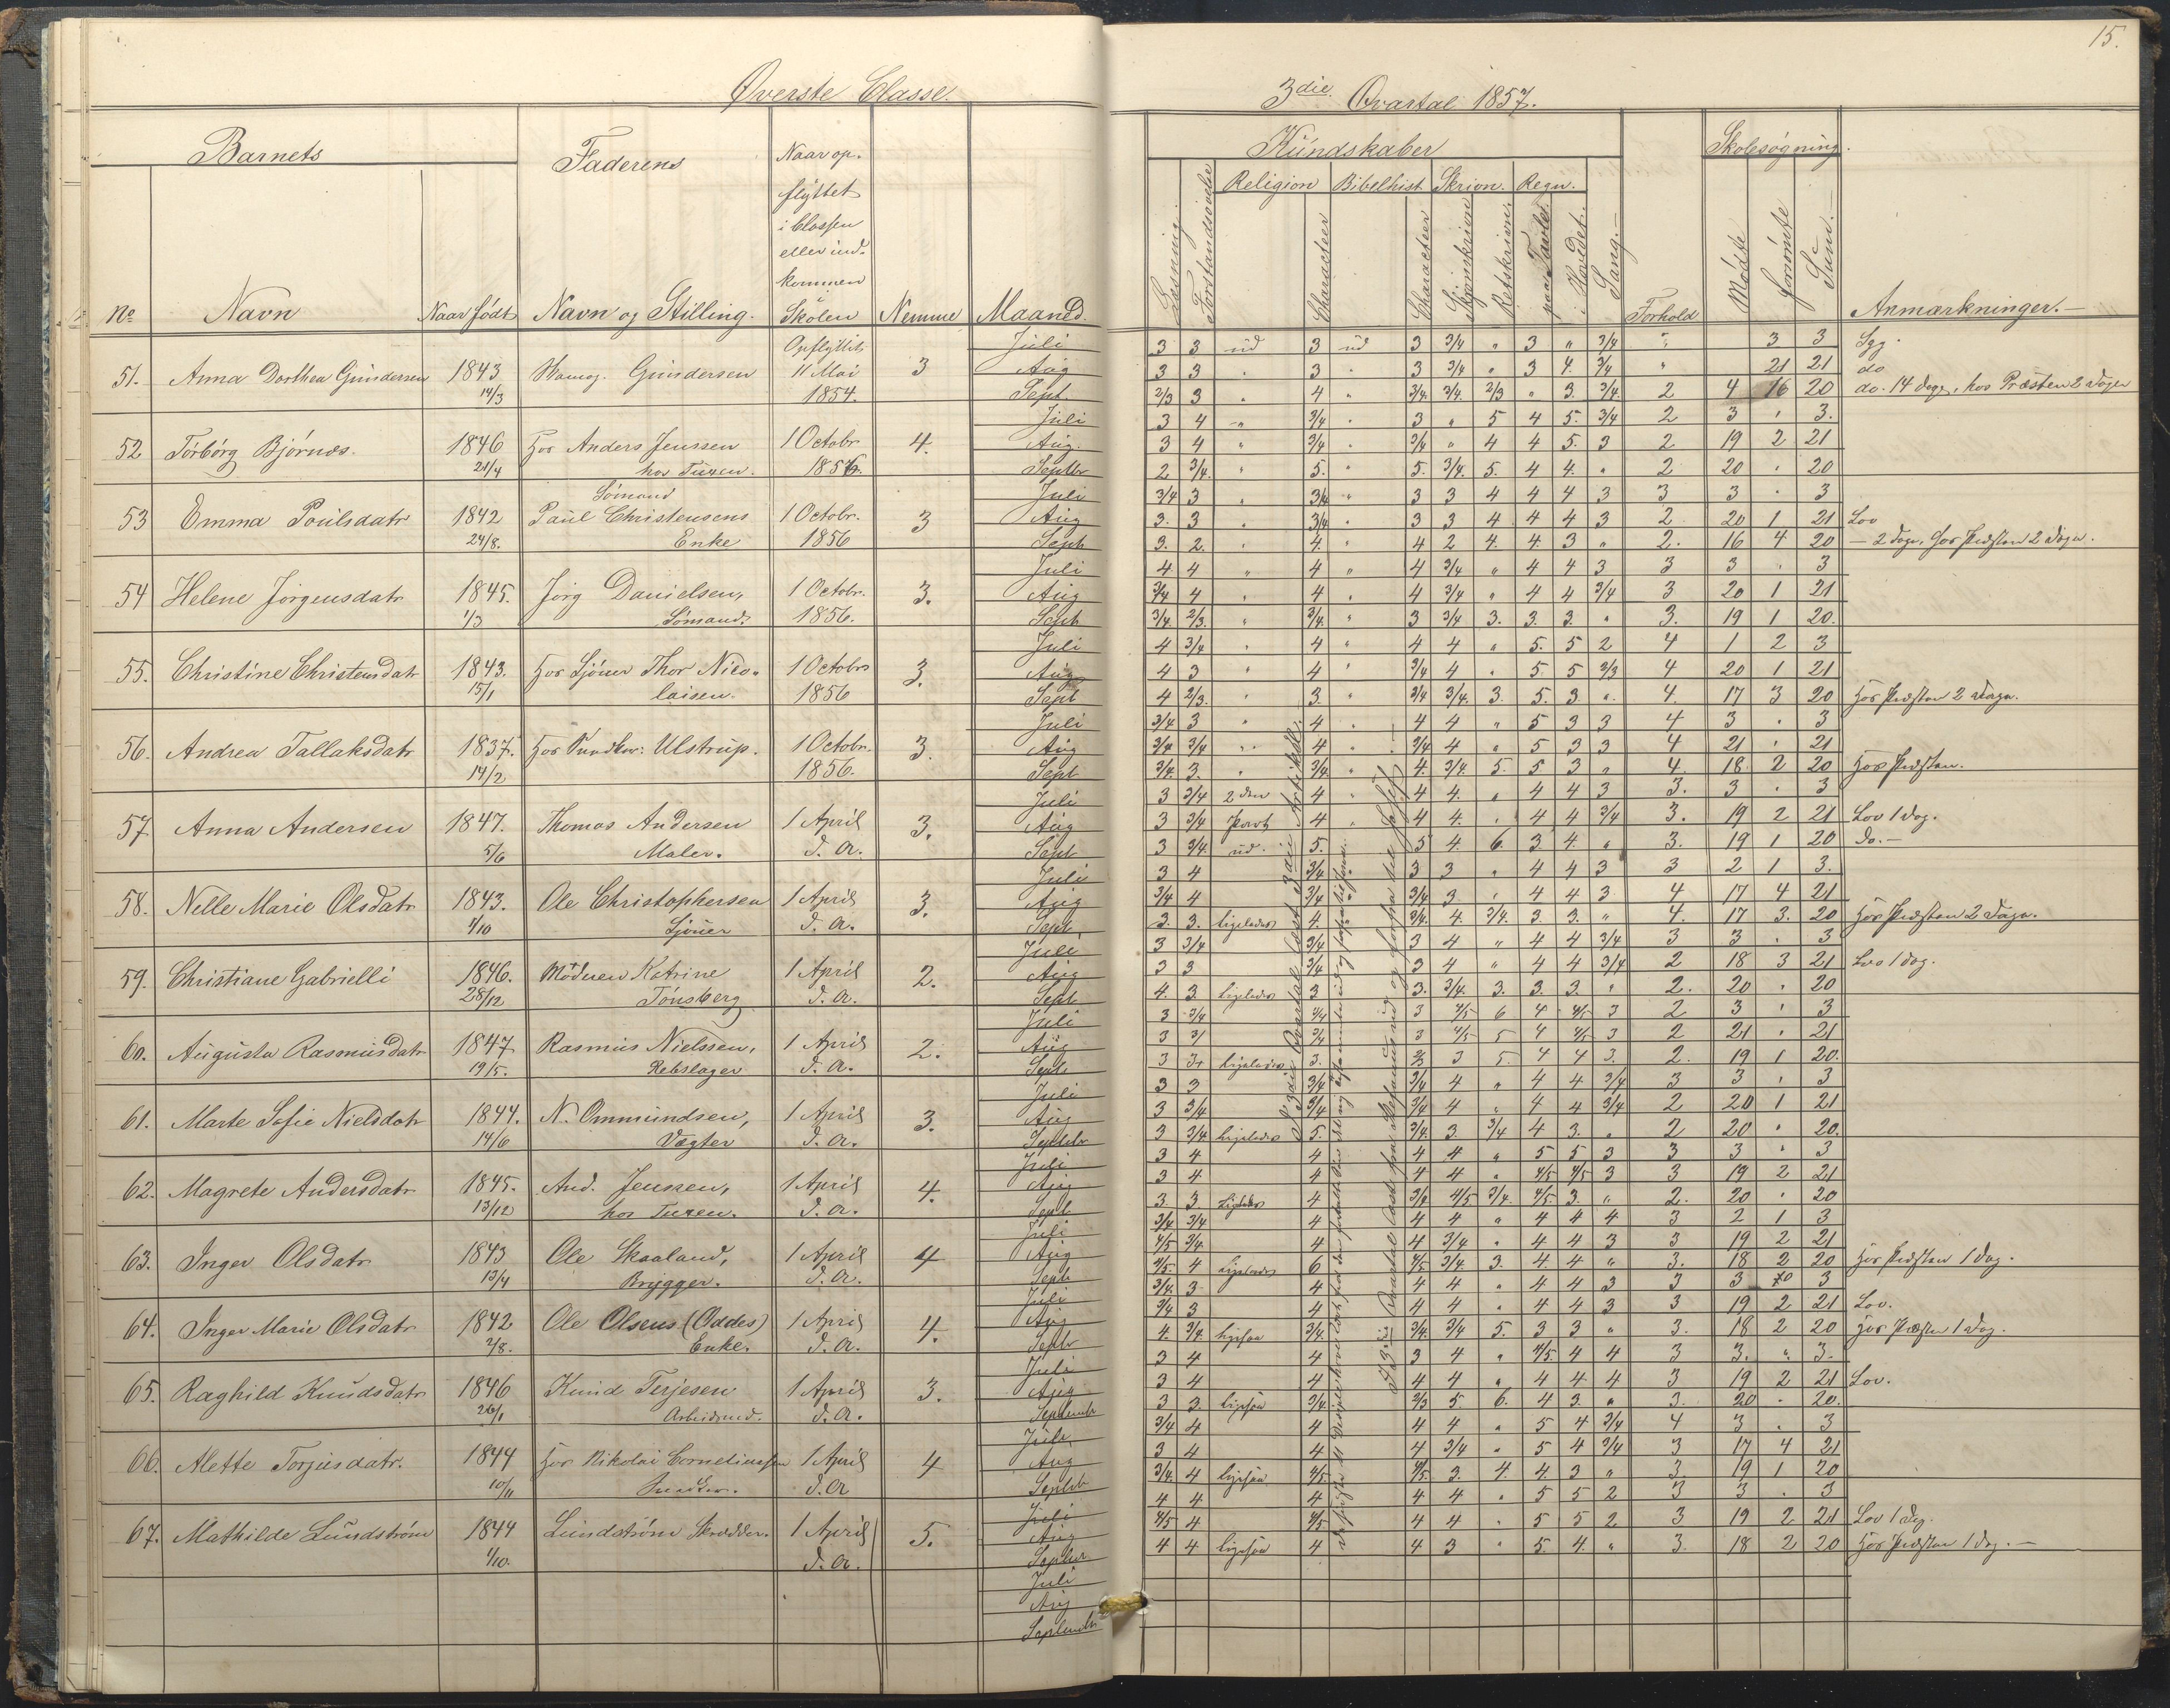 15.
Øverste Classe.
3die Qvartal 1857.
Barnets
Faderens
Naar op-
flyttet
i Classen
eller ind-
kommen
Skolen
No
Navn
Naar født
Navn og Stilling.
Nemme
Maaned
Kundskaber
Skolesøgning.
Religion Bibelhist. Skrivn. Regn.
Læsning.
Forstandsøvelse
Characteer
Characteer
Skjønskrivn
Retskrivn.
paa Tavle
i Hovdet.
Sang.
Forhold
Mødte
forsømte
Sum.
Anmærkninger.
51. Anna Dorthea Gundersen 1843 14/3 Gundersen Opflyttet 11 Mai 1854. 3 Juli Aug Sept.
3 3 ud 3 ud 3 3/4 " 3 " 3/4 " 3 3 Syg.
3 3 " 3 " 3 3/4 " 3 4. 3/4 " 21 21 do
2/3 3 " 4 " 3/4. 3/4. 2/3 " 3. 3/4. 2 4 16 20 do. 14 dage, hos Præsten 2 dage
52 Torborg Bjørnæs. 1846 21/4 Hos Anders Jenssen hos Tuxen. 1 Octobr 1856. 4. Juli Aug. Septbr
3 4 " 3/4 " 3 " 5 4 5. 3/4 2 3 " 3.
3 4 " 3/4 " 3/4 " 4 4 5. 3 2 19 2 21
2 3/4. " 5. " 5. 3/4. 5. 4 4. " 2 20 " 20
53 Emma Poulsdatr 1842 24/8. Sømand Paul Christensens Enke 1 Octobr. 1856 3 Juli Aug Sept
3/4 3 " 3/4 " 3 3 4 4 4 3 3 3 " 3
3. 3 " 3/4 " 3 3 4 4 4 3 2 20 1 21 Lov
3. 2. " 4. " 4 2 4. 4. 3 " 2. 16 4 20 – 2 dage, hos Præsten 2 dage.
54 Helene Jørgensdatr 1845. 1/3 Jørg Danielsen, Sømand. 1 Octobr. 1856. 3. Juli Aug Sept
4 4 " 4 " 4 3/4 " 4 4 3 3 3 " 3
3/4 4 " 4 " 4 3/4 " 4 4 3/4 3 20 1 21
3/4. 2/3. " 3/4. " 3 3/4 3. 3. 3. " 3. 19 1 20.
55. Christine Christensdatr 1843. 15/1 Hos Sjouer Thor Nicolaisen. 1 Octobr 1856 3. Juli Aug Sept
4 3/4 " 4 " 4 4 " 5. 5 2 4 1 2 3
4 3 " 4 " 3/4 4 " 5 5 2/3 4 20 1 21
4 2/3. " 3. " 3/4 3/4. 3. 5. 3. " 4. 17 3 20 Hos Præsten 2 dage.
56. Andrea Tallaksdatr 1837. 14/2 Hos Ulstrup. 1 Octobr. 1856. 3. Juli Aug Sept
3/4 3 " 4 " 4 4 " 5 3 3 4 3 " 3
3/4 3/4 " 4 " 3/4 4 " 5 3 3 4 21 " 21
3/4. 3. " 3/4. " 4. 3/4. 5. 5 3 " 4. 18 2 20 Hos Præsten.
57. Anna Andersen 1847. 5/6 Thomas Andersen Maler. 1 April d. A. 3. Juli Aug Sept
3 3/4 2den 4 " 4 4. " 4 4 3 3. 3 " 3
3 3/4 Part 4 " 4 4. " 4 4 3/4 3. 19 2 21 Lov 1 dag.
3 3/4. ud. 5. 5 4. 6. 3 4. " 3. 19 1 20 do.–
58. Nelle Marie Olsdatr 1843. 1/10 Ole Christophersen Sjouer 1 April d. A. 3. Juli Aug Sept.
3 4 3/4 3 3 " 4 4 3 3 2 1 3.
3/4 4 3/4 3/4 3 " 4 4 3 4 17 4 21
3. 3. ligeledes 4. 3/4. 4. 3/4. 3. 3. " 4. 17 3. 20 Hos Præsten 2 dage.
59. Christiane Gabrielli 1846. 28/12 Moderen Katrine Tønsberg 1 April d. A. 2. Juli Aug Sept
3 3/4 3/4 3 4 " 4 4 3/4 3 3 " 3
3 3 3/4 3 4 " 4 4 3/4 2 18 3 21 Lov 1 dag.
4. 3. ligeledes 3 3. 3/4. 3. 3. 3. " 2. 20 " 20
60. Augusta Rasmusdatr 1847 19/5. Rasmus Nielssen, Rebslager 1 April d. A. 2. Juli Aug Sept
3 3/4 3/4 3 4/5 6 4 4/5 3 2 3 " 3
3 3/ 3/4 3 4/5 5 4 4/5 3 2 21 " 21
3 ligeledes 3. 2/3 3 5. 4 4 3. 2. 19 1 20.
61. Marte Sofie Nielsdatr 1844. 14/6 N. Ommundsen, Vægter 1 April d. A. 3. Juli Aug Septebr
3 3 3/4 3/4 4 " 4 4 3/4 3 3 " 3
3 3/4 3/4 3/4 4 " 4 4 3/4 2 20 1 21
3 3/4 ligeledes 5. 3/4. 3. 3/4 4 3. " 2 20 " 20.
62. Magrete Andersdatr 1845. 13/12 And. Jensen, hos Tuxen. 1 April d. A. 4. Juli Aug Sept
3 4 4 4 4 " 5 5 3 3 3 " 3
3 4. 4 4 4 " 4/5 4/5 3 3 19 2 21
3 3. Ligeledes 4 3/4 4/5 3/4. 4/5. 3. " 2. 20 " 20
63. Inger Olsdatr 1843 13/4 Ole Skaaland, Brygger. 1 April d. A. 4 Juli Aug Sept
3/4 3/4 4 4 4 " 4 4 4 3 2 1 3
4/5 3/4. 4 4 3/4 " 4 4 3 3 19 2 21
4/5. 4 ligeledes 6 4/5 3/4. 3. 4 4 " 3. 18 2 20 Hos Præsten 1 dag.
64. Inger Marie Olsdatr 1842 2/8. Ole Olsens (Oddes) Enke. 1 April d. A. 4. Juli Aug Septbr
3/4. 3 4 4 4 " 4 4 3 3 3 3
3/4 3 4 4 4 " 4 4 3 3 19 2 21 Lov.
4. 3/4. ligesaa 3/4. 3/4. 3/4 5. 3 3 " 3. 18 2 20 Hos Præsten 1 dag.
65. Raghild Knudsdatr 1846 26/1 Knud Terjesen Arbeidsmd. 1 April d. A. 3. Juli Aug Septembr
3 4 4 3 4 " 4/5. 4 4 3 3. " 3.
3 4 4 4 4 " 4 4 4 3 19 2 21 Lov.
3 3. ligesaa 3/4. 2/3 5. 6. 4 3. " 3. 20 " 20.
66. Alette Torjusdatr. 1844 10/11 Hos Nikolai Corneliussen 1 April d. A 4 Juli Aug Septbr
3/4 4 4 4 4 " 5 4 3/4 4 3 " 3
3 4 4 4 3/4 " 5 4 3/4 3 17 4 21
3/4. 4 ligesaa 4/5. 4/5. 3. 4. 4. 3 " 3. 19 1 20
67. Mathilde Lundstrøm 1844 1/10. Lundstrøm Skrædder. 1 April d. A. 5. Juli Aug Septbr
4 4 4 4 4 " 5 5 2 3 3 " 3
4/5 4 4/5 4 4 " 5 5 2 3 19 2 21 Lov 1 dag.
4 4 ligesaa 4 4 3 " 5. 4. " 3. 18 2 20 Hos Præsten 1 dag.–
Juli
Aug
Septembr